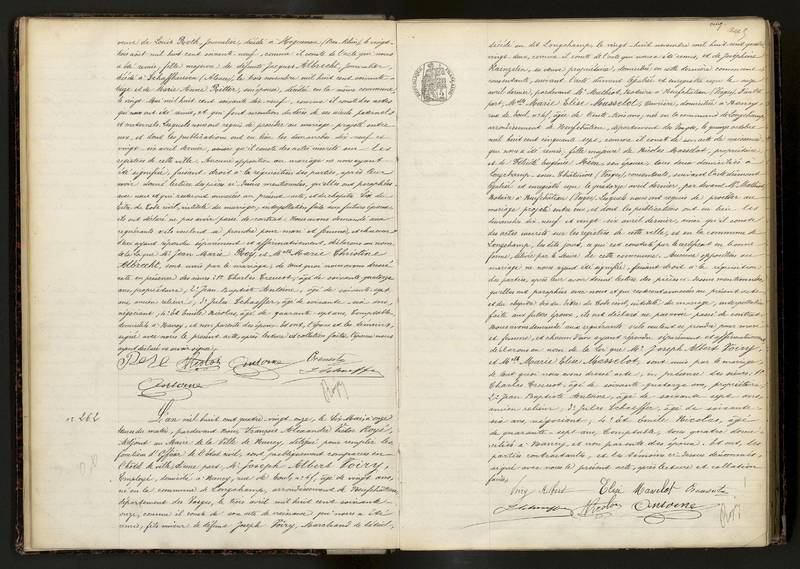 veuve de Louis Roth, journalier, décédé à Haguenau (Bas-Rhin), le vingt
août mil huit cent soixante-neuf, comme il conste de l'acte qui nous
a été remis, fille majeure de défunts Jacques Albrecht, journalier,
décédé à Schaffhausen (Alsace), le trois novembre mil huit cent soixante
et de Marie Anne Ritter, son épouse, décédée en la même commune,
le vingt mai mil huit cent soixante dix neuf, comme il conste des actes
qui nous ont été remis, et qui font mention du décès de ses aïeuls paternels
et maternels. Lesquels nous ont requis de procéder au mariage projeté entre
eux, et dont les publications ont eu lieu les dimanches dix neuf et
vingt six avril dernier, ainsi qu'il conste des actes inscrits sur les
registres de cette ville. Aucune opposition au mariage ne nous ayant
été signifiée, faisant droit à la réquisition des parties, après leur
avoir donné lecture des pièces ci-dessus mentionnées, qu'elles ont paraphées
avec nous et qui resteront annexées au présent acte, et du chapitre six du
titre du Code civil, intitulé du mariage, interpellation faite aux futurs époux,
ils ont déclaré ne pas avoir passé de contrat. Nous avons demandé aux
requérants s'ils veulent se prendre pour mari et femme, et chacun
d'eux ayant répondu séparément et affirmativement, déclarons au nom
de la loi que Mr Jean Marie Rose, et Mme Marie Christine
Albrecht, sont unis par le mariage, de tout quoi nous avons dressé
acte en présence des sieurs 1° Charles Creusot, âgé de soixante quatorze
ans, propriétaire, 2° Jean Baptiste Antoine, âgé de soixante sept
ans, ancien relieur, 3° Jules Schaeffer, âgé de soixante six ans,
négociant, 4° et Emile Nicolas, âgé de quarante sept ans, Comptable,
domiciliés à Nancy, et non parents des époux. Et ont, l'époux et les témoins,
signé avec nous le présent acte, après lecture et collation faites, l'épouse nous
ayant déclaré ne savoir signer.
Rose Nicolas Antoine
Schaeffer
Antoine
N° 262
L'an mil huit cent quatre-vingt onze, le six mai à onze
heures du matin, pardevant nous François Alexandre Victor
Adjoint au Maire de la Ville de Nancy, délégué pour remplir les
fonctions d'Officier de l'Etat civil, sont publiquement comparus en
l'hôtel de ville d'une part, Mr Joseph Albert Voiry,
Employé, domicilié à Nancy, rue de Toul, n° 45, âgé de vingt ans,
né en la commune de Longchamp, arrondissement de Neufchâteau,
département des Vosges, le trois avril mil huit cent soixante
onze, comme il conste de son acte de naissance qui nous a été
remis, fils mineur de défunt Joseph Voiry, Marchand de bétail,
décédé au dit Longchamp, le vingt huit novembre mil huit cent quatre
vingt deux, comme il conste de l'acte qui nous a été remis, et de Joséphine
sa veuve, propriétaire, domiciliée en cette dernière commune,
consentante, suivant l'acte dûment légalisé et enregistré que le
avril dernier, pardevant Me Mathiot, Notaire à Neufchâteau (Vosges), d'autre
part, Mlle Marie Elise Masselot, ouvrière, domiciliée à Nancy,
rue de Toul, n° 45, âgée de trente trois ans, née en la commune de Longchamp,
arrondissement de Neufchâteau, département des Vosges, le quinze octobre
mil huit cent cinquante sept, comme il conste de son acte de naissance
qui nous a été remis, fille majeure de Nicolas Masselot, propriétaire
et de son épouse, tous deux domiciliés à
Longchamp sous Châtenois (Vosges), consentants, suivant l'acte dûment
légalisé et enregistré que le quatorze avril dernier, par devant Me Mathiot
Notaire à Neufchâteau (Vosges), lesquels nous ont requis de procéder au
mariage projeté entre eux, et dont les publications ont eu lieu les
dimanches dix neuf, et vingt six avril dernier, ainsi qu'il conste
des actes inscrits sur les registres de cette ville, et en la commune de
Longchamp, les dits jours, ce qui est constaté par le certificat en bonne
forme, délivré par le Maire de cette commune. Aucune opposition au
mariage ne nous ayant été signifiée, faisant droit à la réquisition
des parties, après leur avoir donné lecture des pièces ci-dessus mentionnées,
qu'elles ont paraphées avec nous et qui resteront annexées au présent acte,
et du chapitre six du titre du Code civil, intitulé du mariage, interpellation
faite aux futurs époux, ils ont déclaré ne pas avoir passé de contrat.
Nous avons demandé aux requérants s'ils veulent se prendre pour mari
et femme, et chacun d'eux ayant répondu séparément et affirmativement,
déclarons au nom de la loi que Mr Joseph Albert Voiry
et Mlle Marie Elise Masselot, sont unis par le mariage,
de tout quoi nous avons dressé acte, en présence des sieurs 1°
Charles Creusot, âgé de soixante quatorze ans, propriétaire,
2° Jean Baptiste Antoine, âgé de soixante sept ans,
ancien relieur, 3° Jules Schaeffer, âgé de soixante
six ans, négociant, 4° et Emile Nicolas, âgé
de quarante sept ans, Comptable, tous quatre domiciliés
à Nancy, et non parents des époux. Et ont, les
parties contractantes, et les témoins ci-dessus dénommés,
signé avec nous le présent acte, après lecture et collation
faites.
Voiry Albert Elise Masselot
Schaeffer Nicolas Antoine